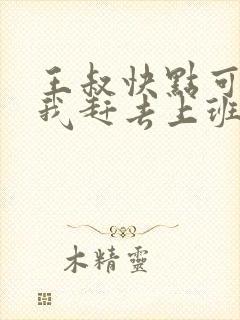 王叔快點可
我赶去上班
木精靈